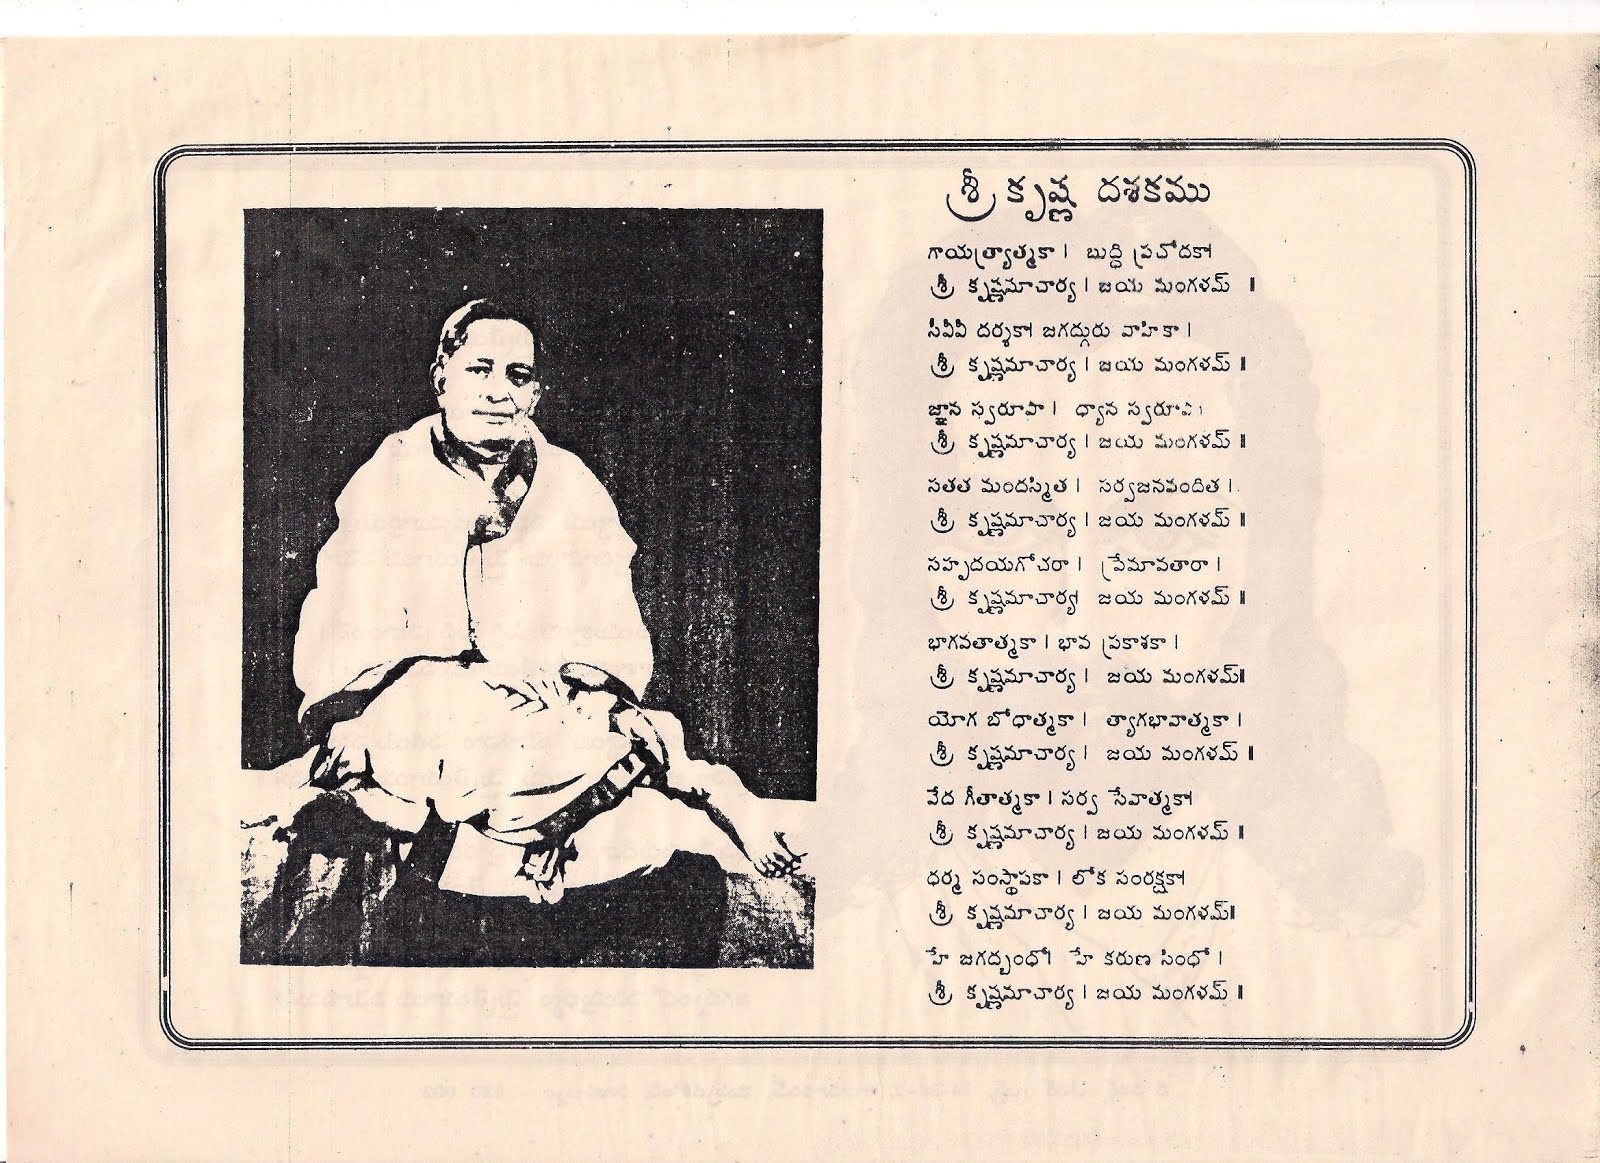 శ్రీ కృష్ణ దశకము
గాయత్ర్యాత్మకా । బుద్ధి ప్రచోదకా।
శ్రీ కృష్ణమాచార్య । జయ మంగళమ్ ॥
సివివి దర్శకా। జగద్గురు వాహికా ।
శ్రీ కృష్ణమాచార్య । జయ మంగళమ్ ॥
జ్ఞాన స్వరూపా । ధ్యాన స్వరూపా ।
శ్రీ కృష్ణమాచార్య । జయ మంగళమ్ ॥
సతత మందస్మిత । సర్వజనవందిత ।
శ్రీ కృష్ణమాచార్య । జయ మంగళమ్ ॥
సహృదయగోచరా । ప్రేమావతారా ।
శ్రీ కృష్ణమాచార్య। జయ మంగళమ్ ॥
భాగవతాత్మకా । భావ ప్రకాశకా ।
శ్రీ కృష్ణమాచార్య । జయ మంగళమ్॥
యోగ బోధాత్మకా । త్యాగభావాత్మకా ।
శ్రీ కృష్ణమాచార్య । జయ మంగళమ్ ॥
వేద గీతాత్మకా । సర్వ సేవాత్మకా।
శ్రీ కృష్ణమాచార్య । జయ మంగళమ్ ॥
ధర్మ సంస్థాపకా । లోక సంరక్షకా।
శ్రీ కృష్ణమాచార్య । జయ మంగళమ్॥
హే జగద్బంధో। హే కరుణ సింధో ।
శ్రీ కృష్ణమాచార్య । జయ మంగళమ్ ॥